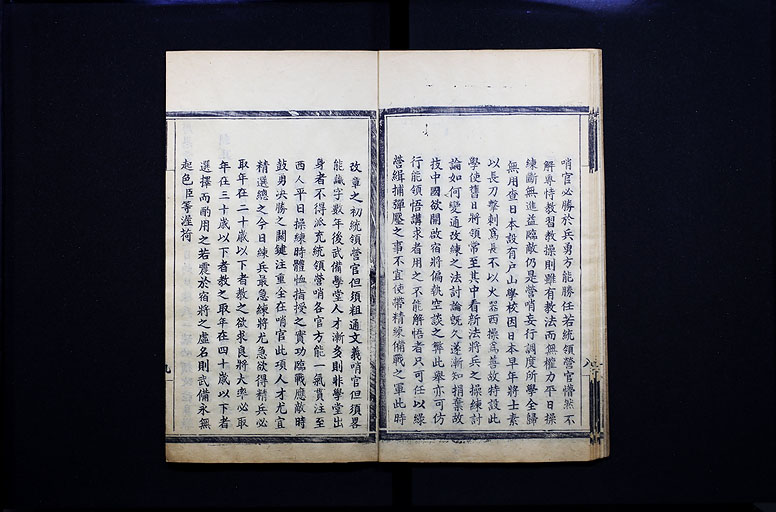 哨官必勝於兵勇方能勝任若統領營官懵然不
解專恃教習教操則雖有教法而無權力平日操
練斷無進益臨敵仍是營哨妄行調度所學全歸
無用查日本設有戶山學校因日本早年將士素
以長刀擊刺爲長不以火器西操爲善故特設此
學使舊日將領常至其中看新法將兵之操練討
論如何變通改練之法討論旣久遂漸知捐棄故
技中國欲開啟宿將偏執空談之弊此舉亦可仿
行能領悟講求者用之不能解悟者只可任以緣
營緝捕彈壓之事不宜使帶精練備戰之軍此時
八
改章之初統領營官但須粗通文義哨官但須畧
能識字數年後武備學堂人才漸多則非學堂出
身者不得派充統領營哨各官方能一氣貫注至
西人平日操練時體恤指授之實功臨戰應敵時
鼓勇決勝之關鍵注重全在哨官此項人才尤宜
精選總之今日練兵最急練將尤急欲得精兵必
取年在二十歲以下者教之欲求良將大率必取
年在三十歲以下者教之取年在四十歲以下者
選擇而酌用之若震於宿將之虛名則武備永無
起色臣等渥荷
九